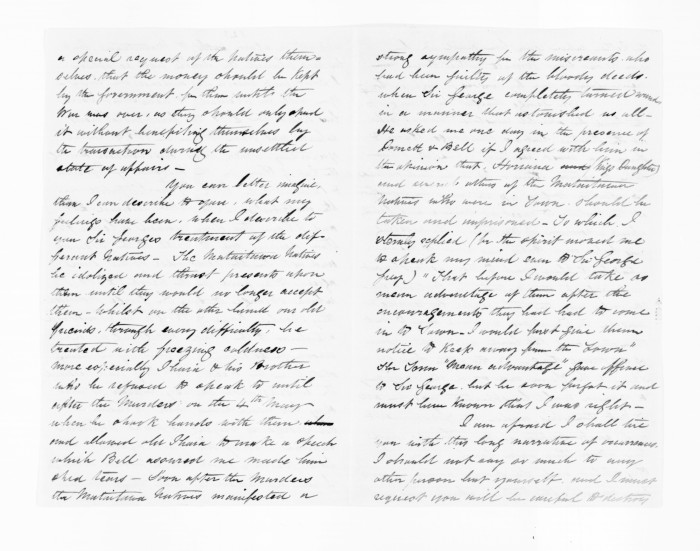 a special request of the Natives them-
selves, that the money should be kept
by the Government for them until the
War was over, as they should only spend
it without benefiting themselves by
the transaction during the unsettled
state of affairs—
You can better imagine
than I can describe to you, what my
feelings have been, when I describe to
you Sir Georges treatment of the dif-
ferent Natives— The Mataitawa Natives
he idolized and thrust presents upon
them until they would no longer accept
them— Whilst on the other hand our old
friends, through every difficulty, he
treated with freezing coldness—
more especially Ihaia & his Brother
who he refused to speak to until
after the Murders on the 4th May
when he shook hands with them
and allowed old Ihaia to make a speech
which Bell assured me made him
shed tears— Soon after the Murders
the Mataitawa Natives manifested a
strong sympathy for the miscreants who
had been guilty of the bloody deeds.
when Sir George completely turned round
in a manner that astonished us all—
He asked me one day in the presence of
Domett & Bell if I agreed with him in
the opinion that, and (Daughter)
and others of the Mataitawa
Natives who were in Town should be
taken and imprisoned— To which I
sternly replied (for the spirit moved me
to speak my mind even to Sir George
Grey) "That before I would take so
mean advantage of them after the
encouragements they had had to come
in to Town— I would first give them
notice to keep away from the Town"
The Term "Mean advantage" gave offence
to Sir George, but he soon forgot it and
must have known that I was right—
I am afraid I shall tire
you with this long narrative of occurrences.
I should not say so much to any
other person but yourself, and I must
request you will be careful to destroy